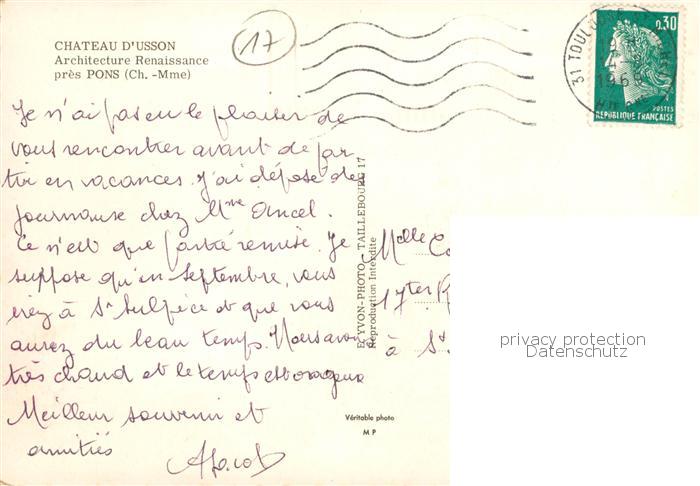 CHATEAU D'USSON
Architecture Renaissance
près PONS (Ch. -Mme)
17
31 TOULOUSE
4-
1969
0,30
POSTES
REPUBLIQUE FRANÇAISE
Je n'ai pas eu le plaisir de
vous rencontrer avant de par
tir en vacances. J'ai déposé des
journaux chez Mme Ancel.
Ce n'est que partie remise. Je
suppose qu'en septembre, vous
irez à St Sulpice et que vous
aurez du beau temps. Nous avons
très chaud et le temps est orageux
Meilleur souvenir et
amitiés
A Jacob
EYVON-PHOTO - TAILLEBOURG 17
Reproduction Interdite
Melle
17ter
à St
Véritable photo
M P
privacy protection
Datenschutz